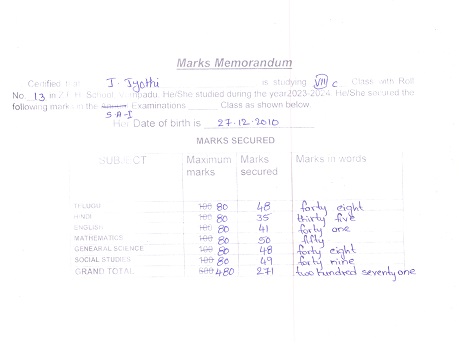 Marks Memorandum
Certified that J. Jyothi is studying VII C Class with Roll
No. 13 in Z.P.H. School, He/She studied during the year 2023-2024. He/She secured the
following marks in the Examinations Class as shown below
S.A-I
Her Date of birth is 27.12.2010
MARKS SECURED
SUBJECT Maximum marks Marks secured Marks in words
TELUGU 100 80 48 forty eight
HINDI 100 80 35 thirty five
ENGLISH 100 80 41 forty one
MATHEMATICS 100 80 50 fifty
GENEARAL SCIENCE 100 80 48 forty eight
SOCIAL STUDIES 100 80 49 forty nine
GRAND TOTAL 600 480 271 two hundred seventy one